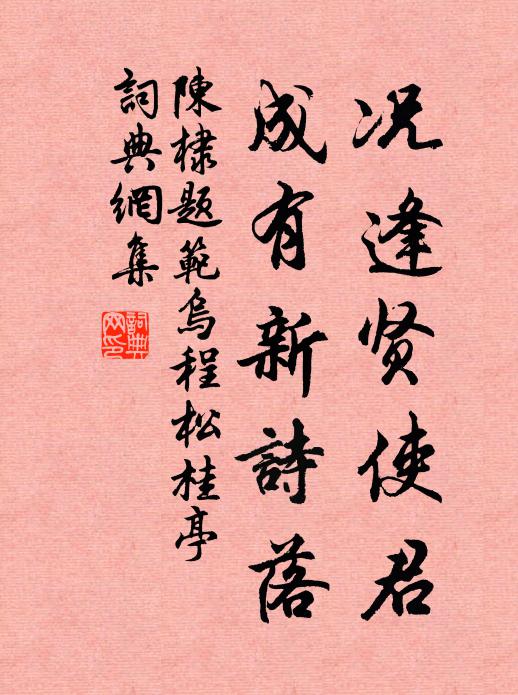 况逢贤使君
成有新詩落
陳棣题範烏程松桂亭
詞典網集
詞典网印